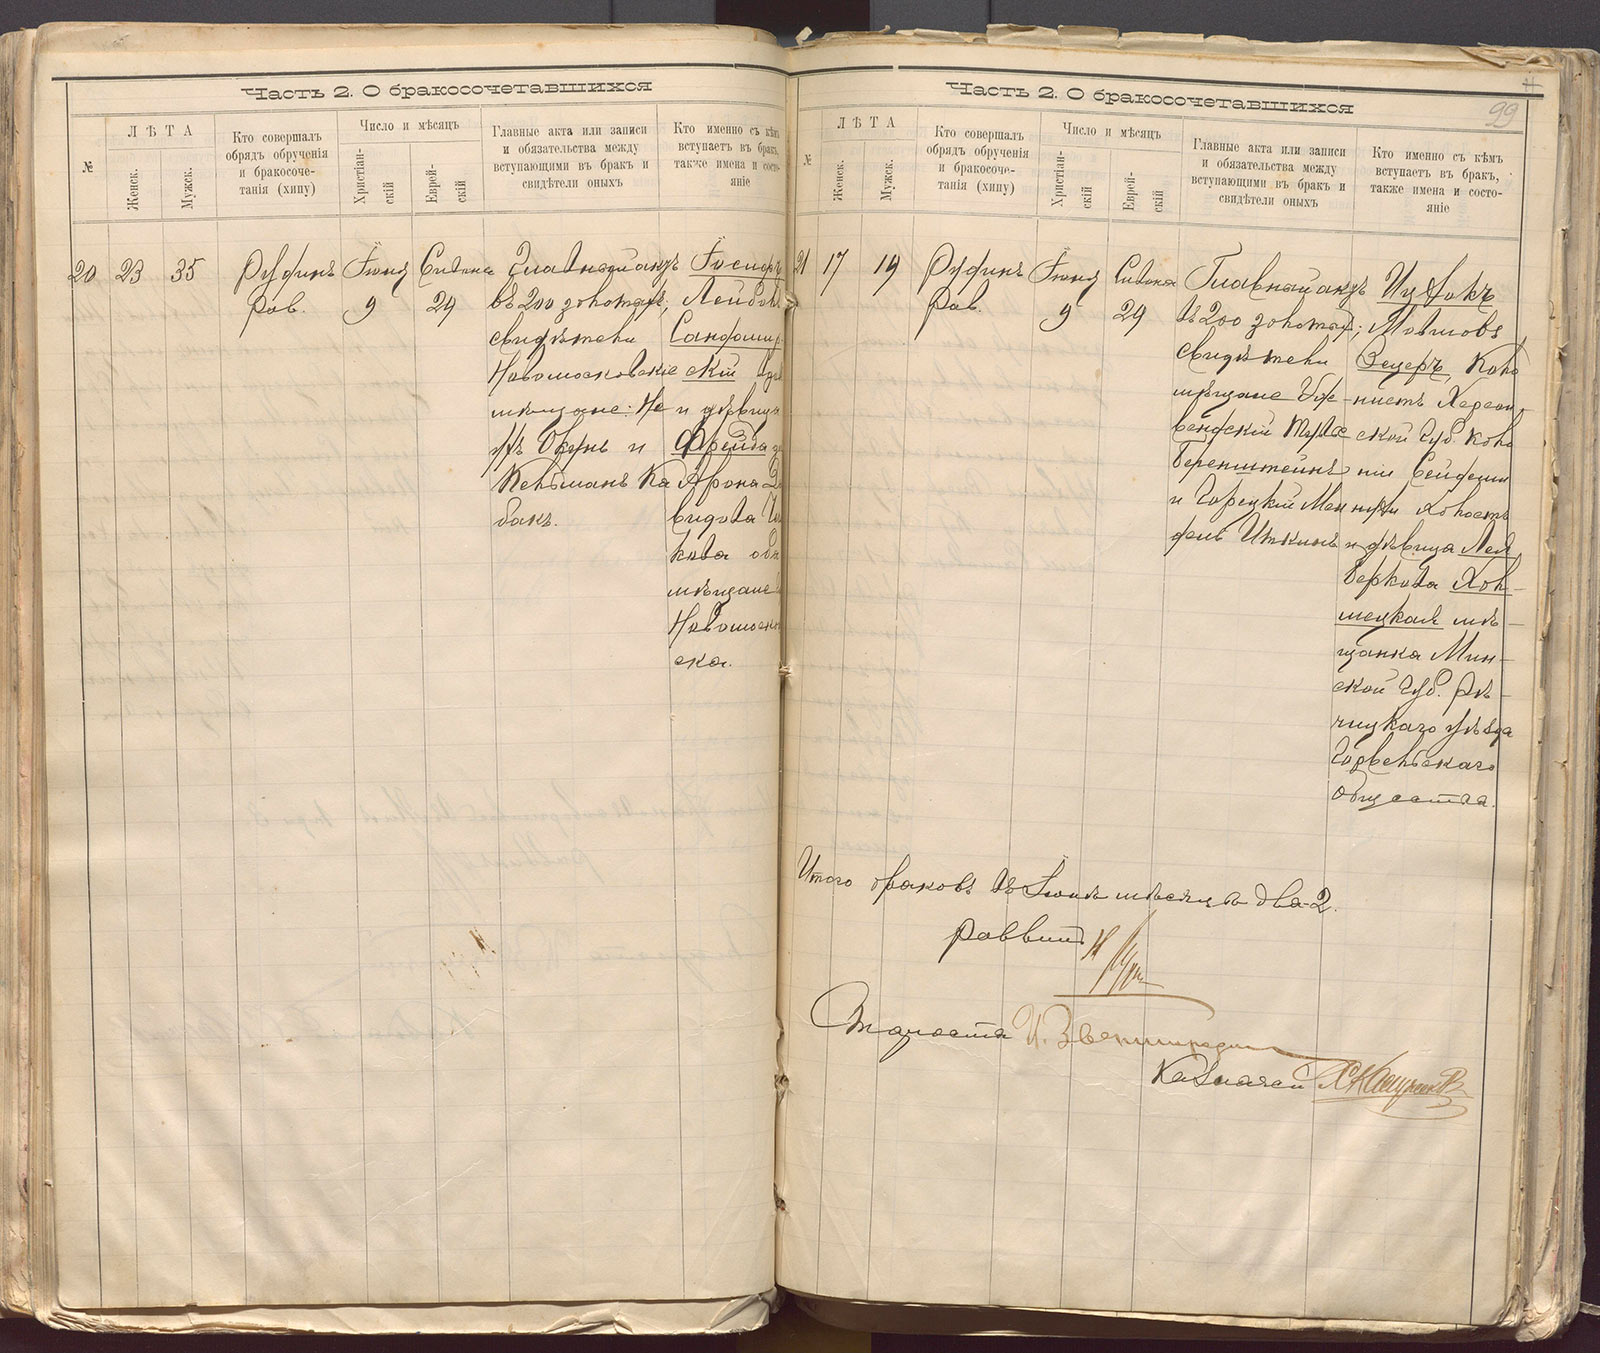 Часть 2. О бракосочетавшихся
№
ЛѢТА
Женск.
Мужск.
Кто совершалъ
обрядъ обрученія
и бракосоче-
танія (хипу)
Число и мѣсяцъ
Христіан-
скій
Еврей-
скій
Главные акта или записи
и обязательства между
вступающими въ бракъ и
свидѣтели оныхъ
Кто именно съ кѣмъ
вступаетъ въ бракъ,
также имена и состо-
яніе
20 23 35
Руфинъ
Рав.
Іюня
9
Сивона
29
Главный актъ
въ 200 золотых;
свидѣтели
Новомосковскіе
мѣщане: Не
Окунь и
Кельманъ Ка
бакъ.
Іосифъ
Лейбов
Сандомир
скій
и дѣвица
Фрейда
Арона
видова
кова оба
мѣщане
Новомоск
ска.
Часть 2. О бракосочетавшихся
99
№
ЛѢТА
Женск.
Мужск.
Кто совершалъ
обрядъ обрученія
и бракосоче-
танія (хипу)
Число и мѣсяцъ
Христіан-
скій
Еврей-
скій
Главные акта или записи
и обязательства между
вступающими въ бракъ и
свидѣтели оныхъ
Кто именно съ кѣмъ
вступаетъ въ бракъ,
также имена и состо-
яніе
21 17 19
Руфинъ
Рав.
Іюня
9
Сивона
29
Главный актъ
въ 200 золотых;
свидѣтели
мѣщане
Беренштейнъ
и Горецкій Мен
дель Иткинъ
Ицхокъ
Мовшовъ
Зецеръ, коло
нистъ Херсон-
ской Губ. коло
ніи Сейдеми
нухи холостъ
и дѣвица Лея
Беркова Хол-
мецкая мѣ-
щанка Мин-
ской Губ. Рѣ-
чицкаго уѣзда
Горвельскаго
общества.
Итого браковъ въ Іюнѣ мѣсяцѣ два-2.
Раввинъ
Староста
Казначей